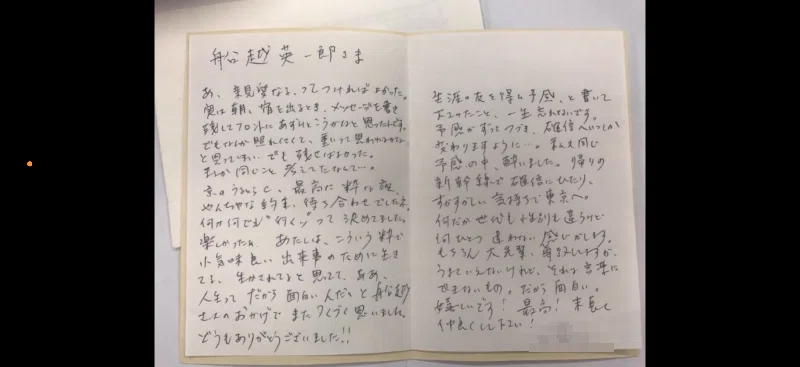 船越英一郎さま
あ、親愛なる、ってつければよかった。
実は朝、宿を出るとき、メッセージを書き
残してフロントにあずけとこうかなと思ったんです。
でもなんか照れくさくて、重いって思われるかな
と思って でも 残せばよかった。
まさか同じこと考えてたなんて…。
京の 最高に粋な
やんちゃな約束、待ち合わせでしたネ。
何が何でも"行くゾ"って決めてました。
楽しかったな あたしは、こういう粋で
小気味良い出来事のために生き
てる、生かされてると思ってて、ああ、
人生ってだから面白いんだと船越
さんのおかげでまたつくづく思いました。
どうもありがとうございました!!
生涯の友を得た予感、と書いて
下さったこと、一生忘れないです。
予感がずっとつづき、確信へいつしか
変わりますように…。私も同じ
予感の中、酔いました。帰りの
新幹線で確信にひたり、
すがすがしい気持ちで東京へ。
何だか世代も性別も違うけど
何ひとつ違わない感じがします。
もちろん大先輩、尊敬しますが、
うまくいえないけれど、それは言葉に
できないもの。だから面白い。
嬉しいです！最高！末長く
仲良くして下さい！